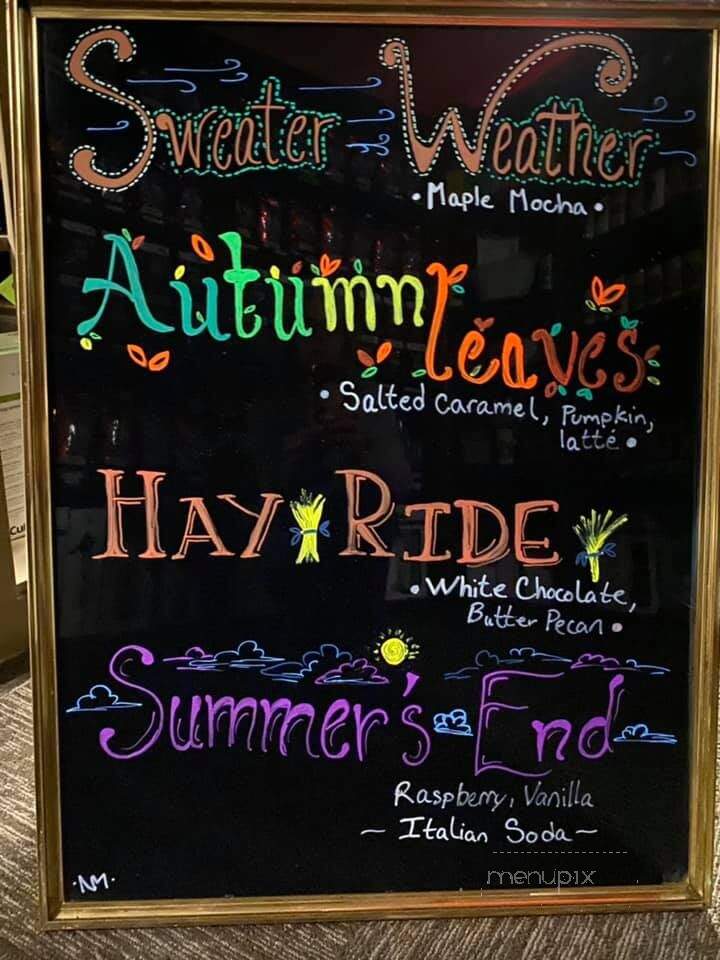 Sweater Weather
• Maple Mocha •
Autumn leaves
• Salted Caramel, Pumpkin,
latté •
HAY RIDE
• White Chocolate,
Butter Pecan •
Summer's End
Raspberry, Vanilla
~ Italian Soda ~
menupix
·NM·